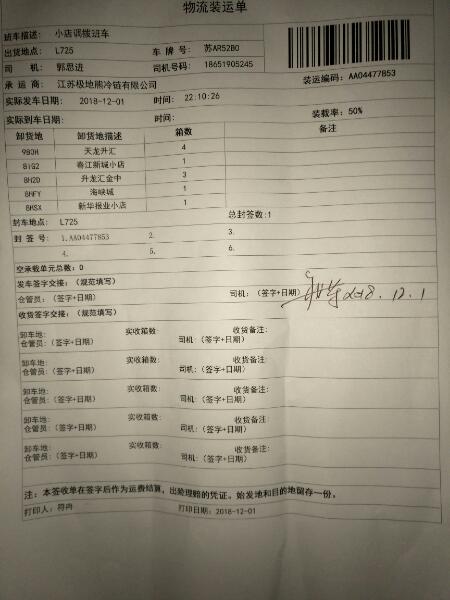 物流装运单
班车描述： 小店调拨班车
出货地点： L725 车 牌 号： 苏AR52B0
司 机： 郭思进 司机号码： 18651905245
承 运 商： 江苏极地熊冷链有限公司 装运编码：AA04477853
实际发车日期： 2018-12-01 时间： 22:10:26
实际到车日期： 时间： 装载率：50%
卸货地 卸货地描述 箱数 备注
980H 天龙升汇 4
8IG2 春江新城小店 1
8H2D 升龙汇金中 3
8HFY 海峡城 1
8HSX 新华报业小店 1
封车地点： L725 总封签数:1
封 签 号： 1.AA04477853 2. 3.
4. 5. 6.
空承载单元总数：0
发车签字交接：（规范填写）
仓管员：（签字+日期） 司机：（签字+日期） 2018.12.1
收货签字交接：（规范填写）
卸车地： 实收箱数： 收货备注：
仓管员：（签字+日期） 司机：（签字+日期）
卸车地： 实收箱数： 收货备注：
仓管员：（签字+日期） 司机：（签字+日期）
卸车地： 实收箱数： 收货备注：
仓管员：（签字+日期） 司机：（签字+日期）
卸车地： 实收箱数： 收货备注：
仓管员：（签字+日期） 司机：（签字+日期）
卸车地： 实收箱数： 收货备注：
仓管员：（签字+日期） 司机：（签字+日期）
注：本签收单在签字后作为运费结算，出险理赔的凭证。始发地和目的地留存一份。
打印人：符冉 打印日期：2018-12-01